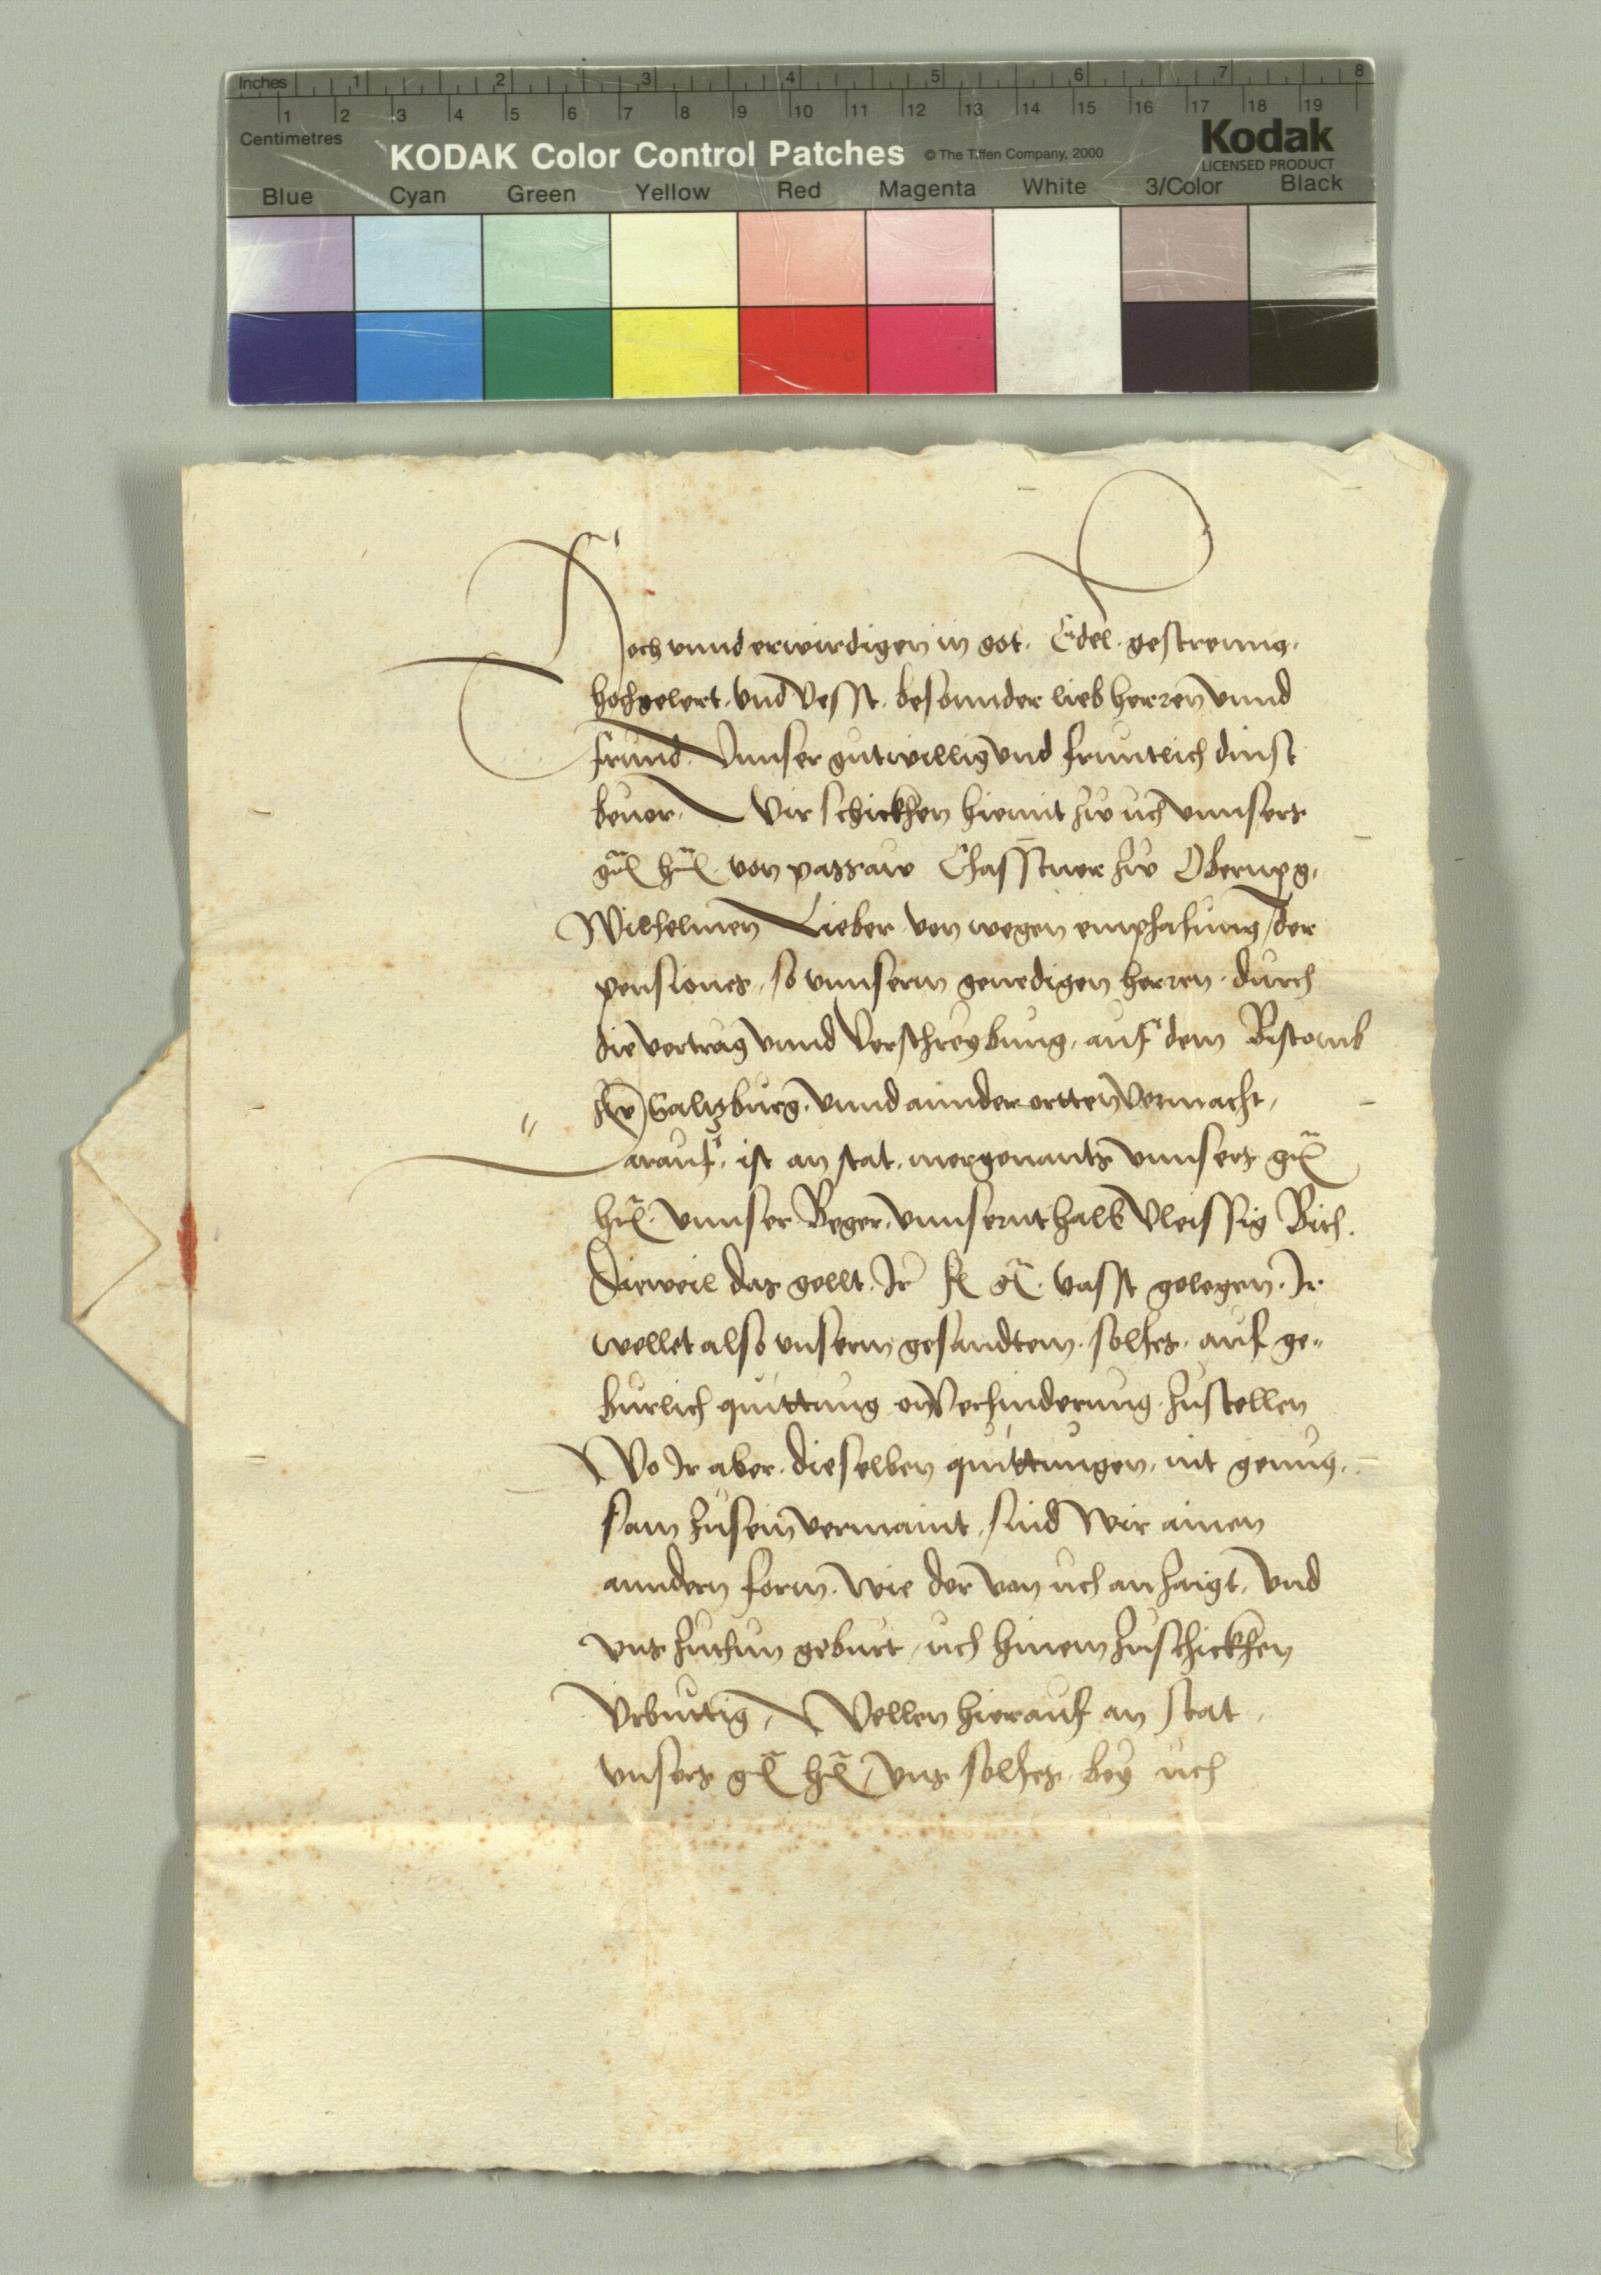 Inches 1 2 3 4 5 6 7 8
1 2 3 4 5 6 7 8 9 10 11 12 13 14 15 16 17 18 19
Centimetres
KODAK Color Control Patches © The Tiffen Company, 2000
Kodak
LICENSED PRODUCT
Blue Cyan Green Yellow Red Magenta White 3/Color Black
Hochunnd erwirdigen in got. Edel. gestreung.
hochgelert. und Vesst. besonnder lieb herren unnd
frund. Unnser gutwillig und fruntlich dinst
bevor. Wir schickhen hiemit zw uch unnsers
gn hn von passaw Chasstner zw Obernpg.
Wilhelmen Lieber von wegen emphahung der
pensiones, so unnserm genedigen herren durch
die vertrag unnd Verschreybung, auf dem Bistomb
zw Saltzburg. unnd annder ortten vermacht,
Darauf, ist an stat. unnsers gn
hn. Unnser Beger. Unnsernthalb Vleissig Bith.
Dieweil das gellt. Ir f g. vasst gelegen. Ir
wellet also unserm gesandtem. solhes. auf ge-
burlich quittung on Verhinderung. zustellen
Wo Ir aber. dieselben quittungen, nit genug.
sam zusein vermaint, sind wir ainen
anndern form. wie der von uch anzaigt, und
uns zuthun geburt, uch hinein zuschickhen
Urbuttig, Wellen hierauf an stat
unsers gn hn, uns solhes bey uch